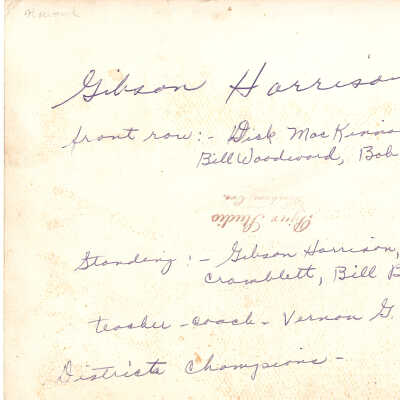 Gibson Harriso
front row:- Dick MacKinno
Bill Woodward, Bob
Studio
Standing:- Gibson Harrison,
Cramblett, Bill B
teacher-coach- Vernon G.
Districts Champions-